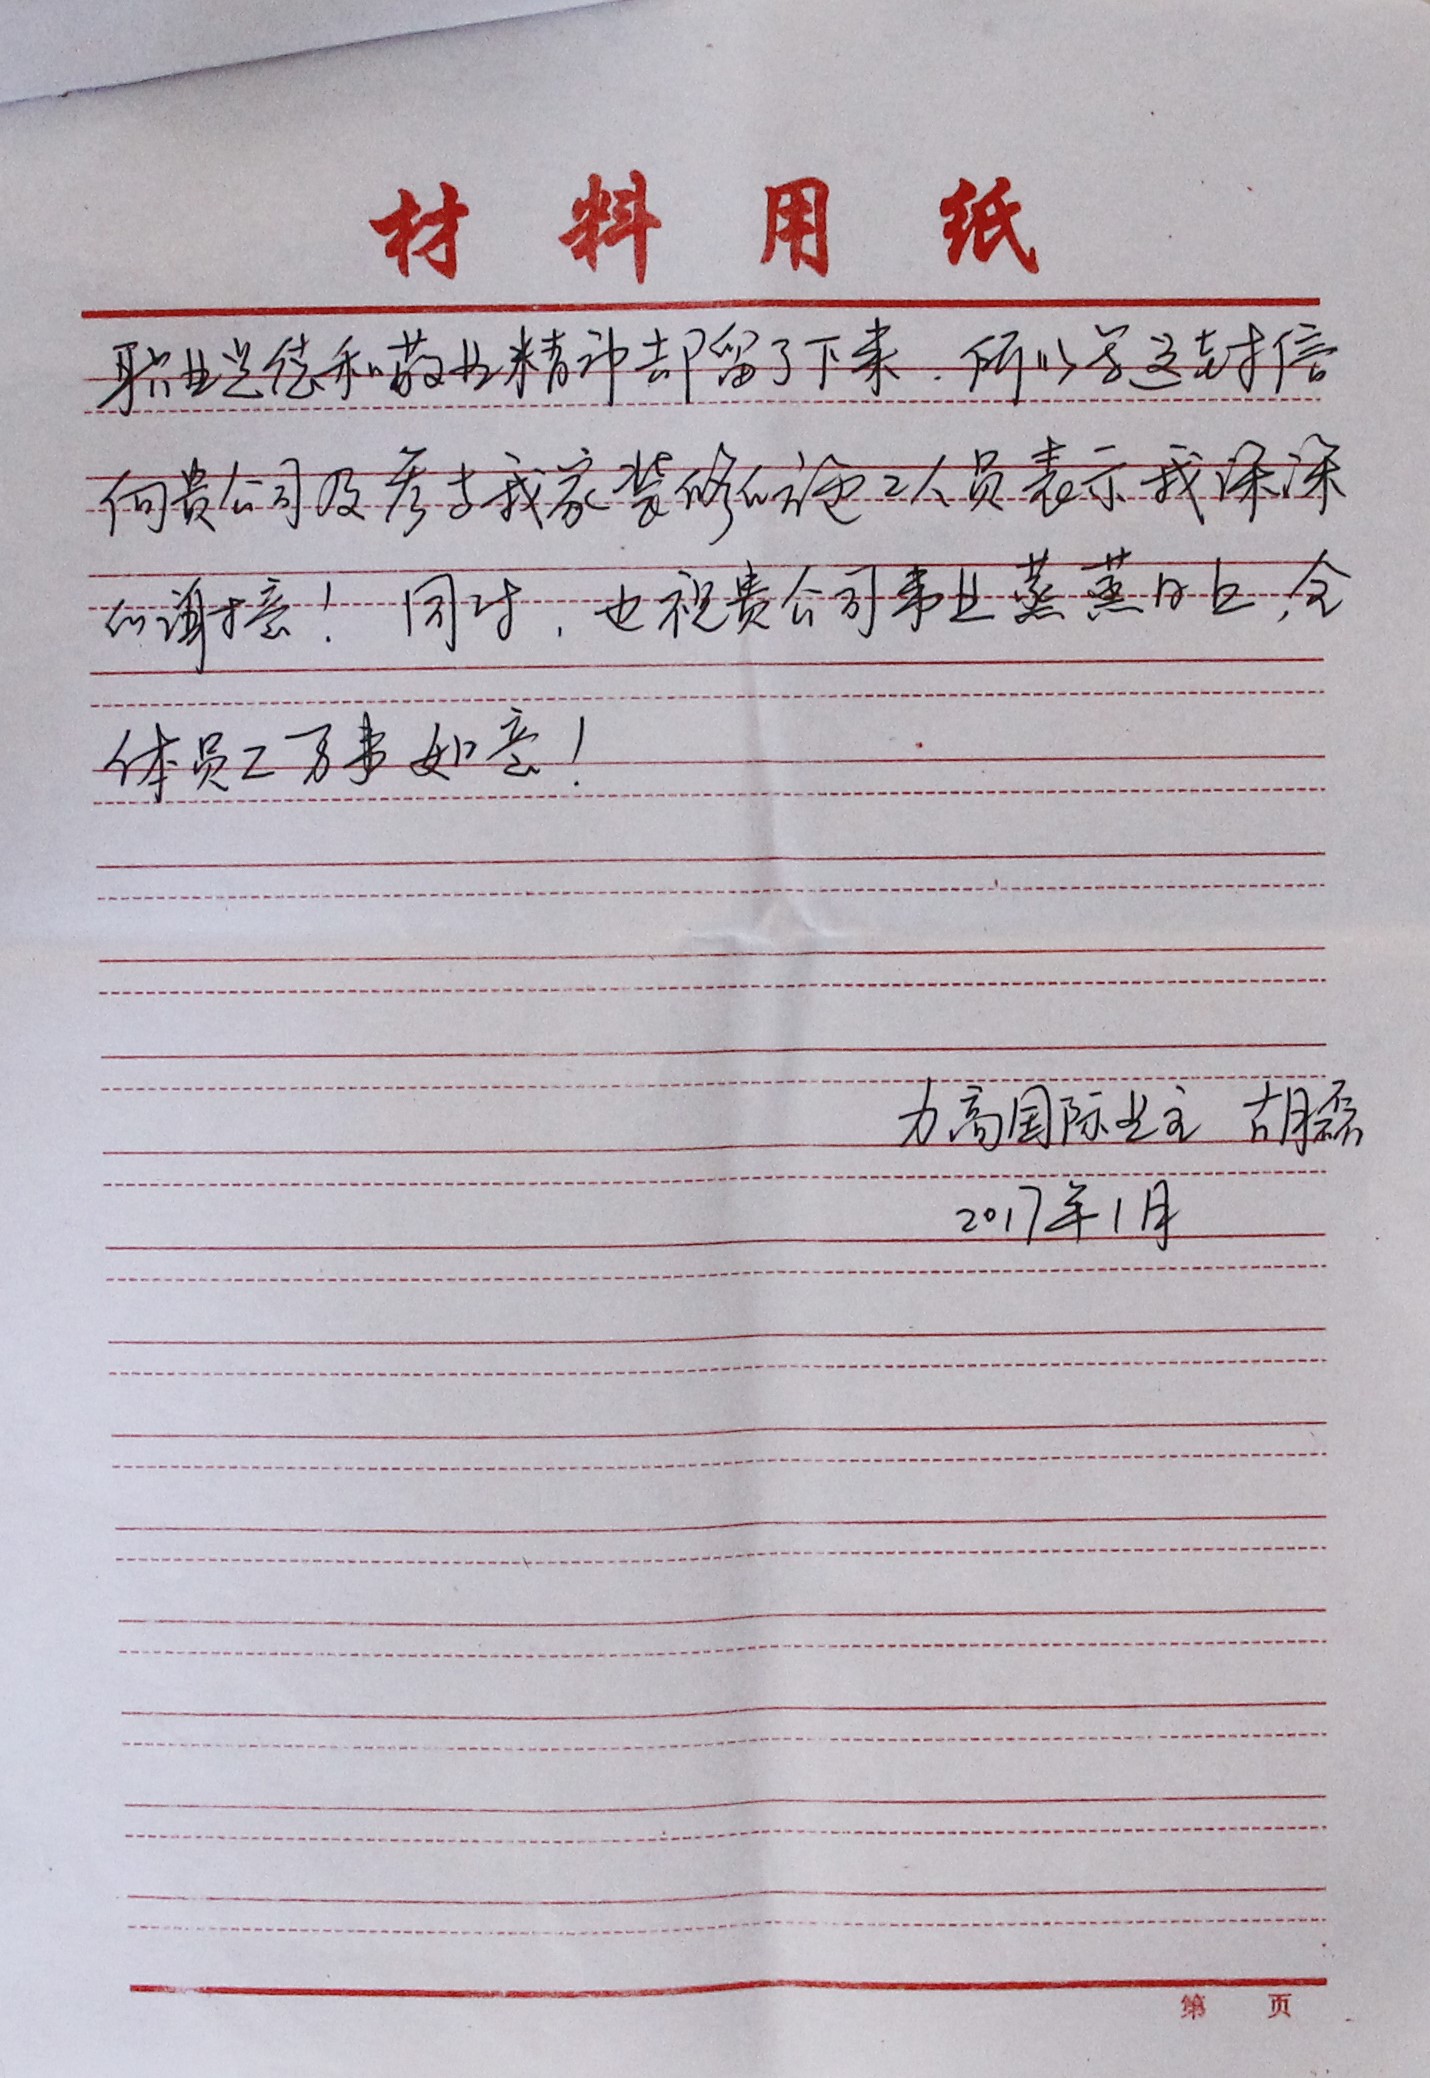 材料用纸
职业道德和敬业精神却留了下来.所以写这封信
向贵公司及参与我家装修的施工人员表示我深深
的谢意!同时,也祝贵公司事业蒸蒸日上,全
体员工万事如意!
力高国际业主 胡磊
2017年1月
第 页